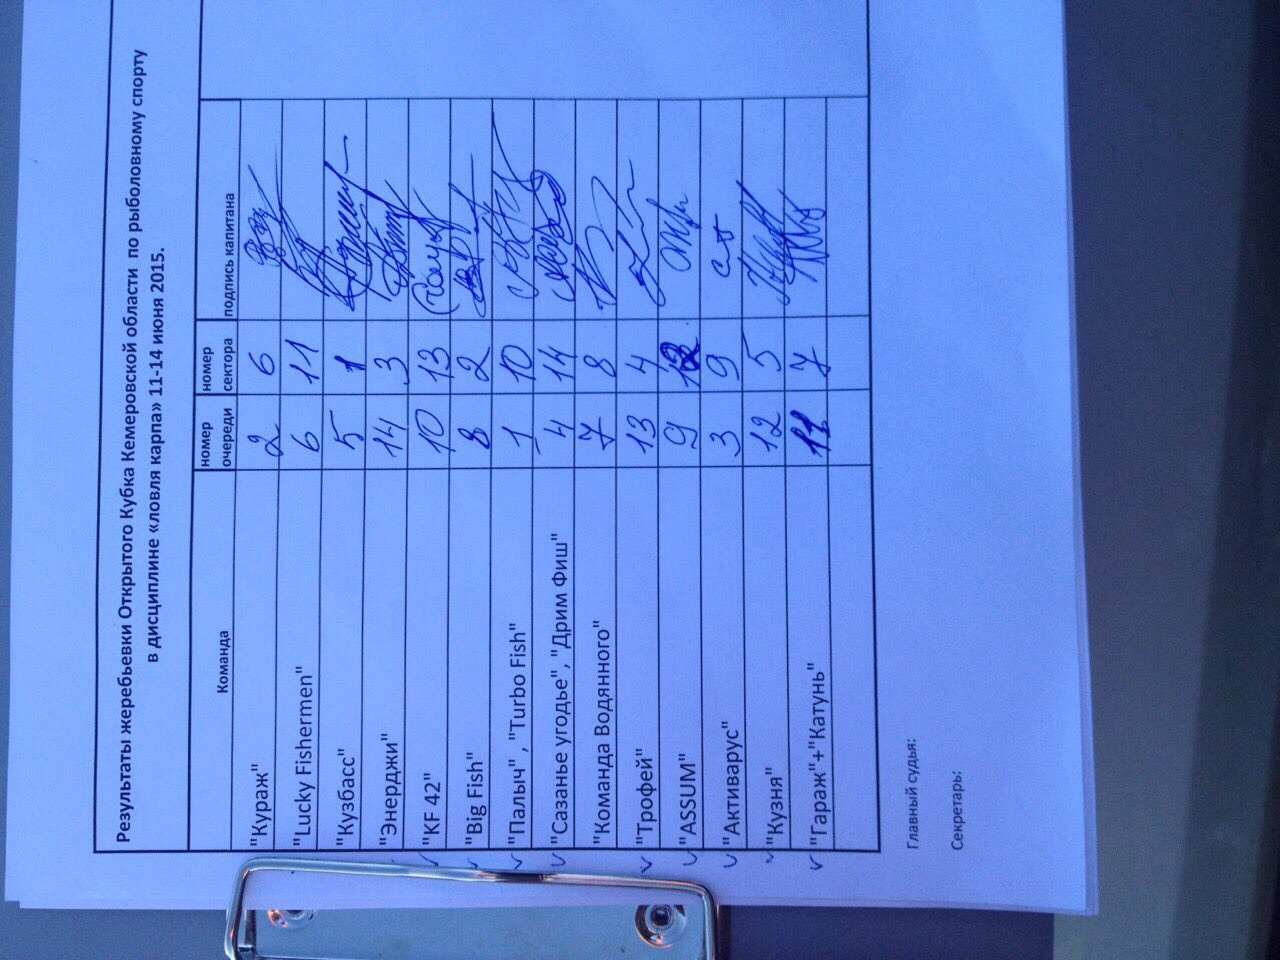 Результаты жеребьевки Открытого Кубка Кемеровской области по рыболовному спорту
в дисциплине «ловля карпа» 11-14 июня 2015.
Команда номер очереди номер сектора подпись капитана
"Кураж" 2 6
"Lucky Fishermen" 6 11
"Кузбасс" 5 1
"Энерджи" 14 3
"KF 42" 10 13
"Big Fish" 8 2
"Палыч" , "Turbo Fish" 1 10
"Сазанье угодье" , "Дрим Фиш" 4 14
"Команда Водянного" 7 8
"Трофей" 13 4
"ASSUM" 9 12
"Активарус" 3 9
"Кузня" 12 5
"Гараж"+"Катунь" 11 7
Главный судья:
Секретарь: